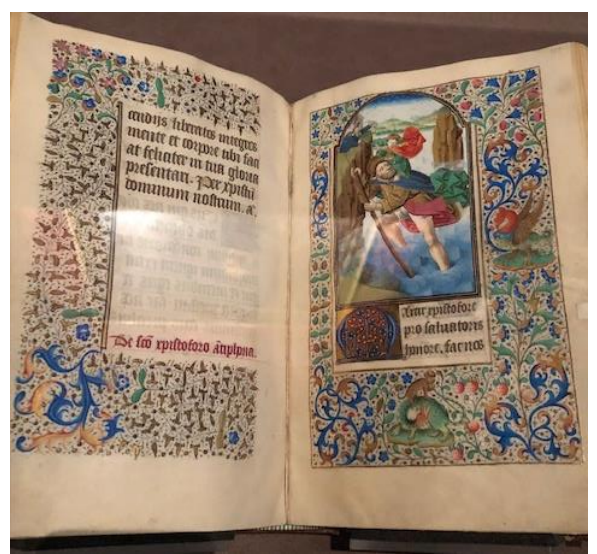 cendijs liberates integris
mente et corpore tibi faci
at feliciter in tua gloria
presentari. Per xpisti
dominum nostrum. a.
De sco xpistoforo antiphona.
Martir xpistofore
pro saluatoris
honore, fac nos